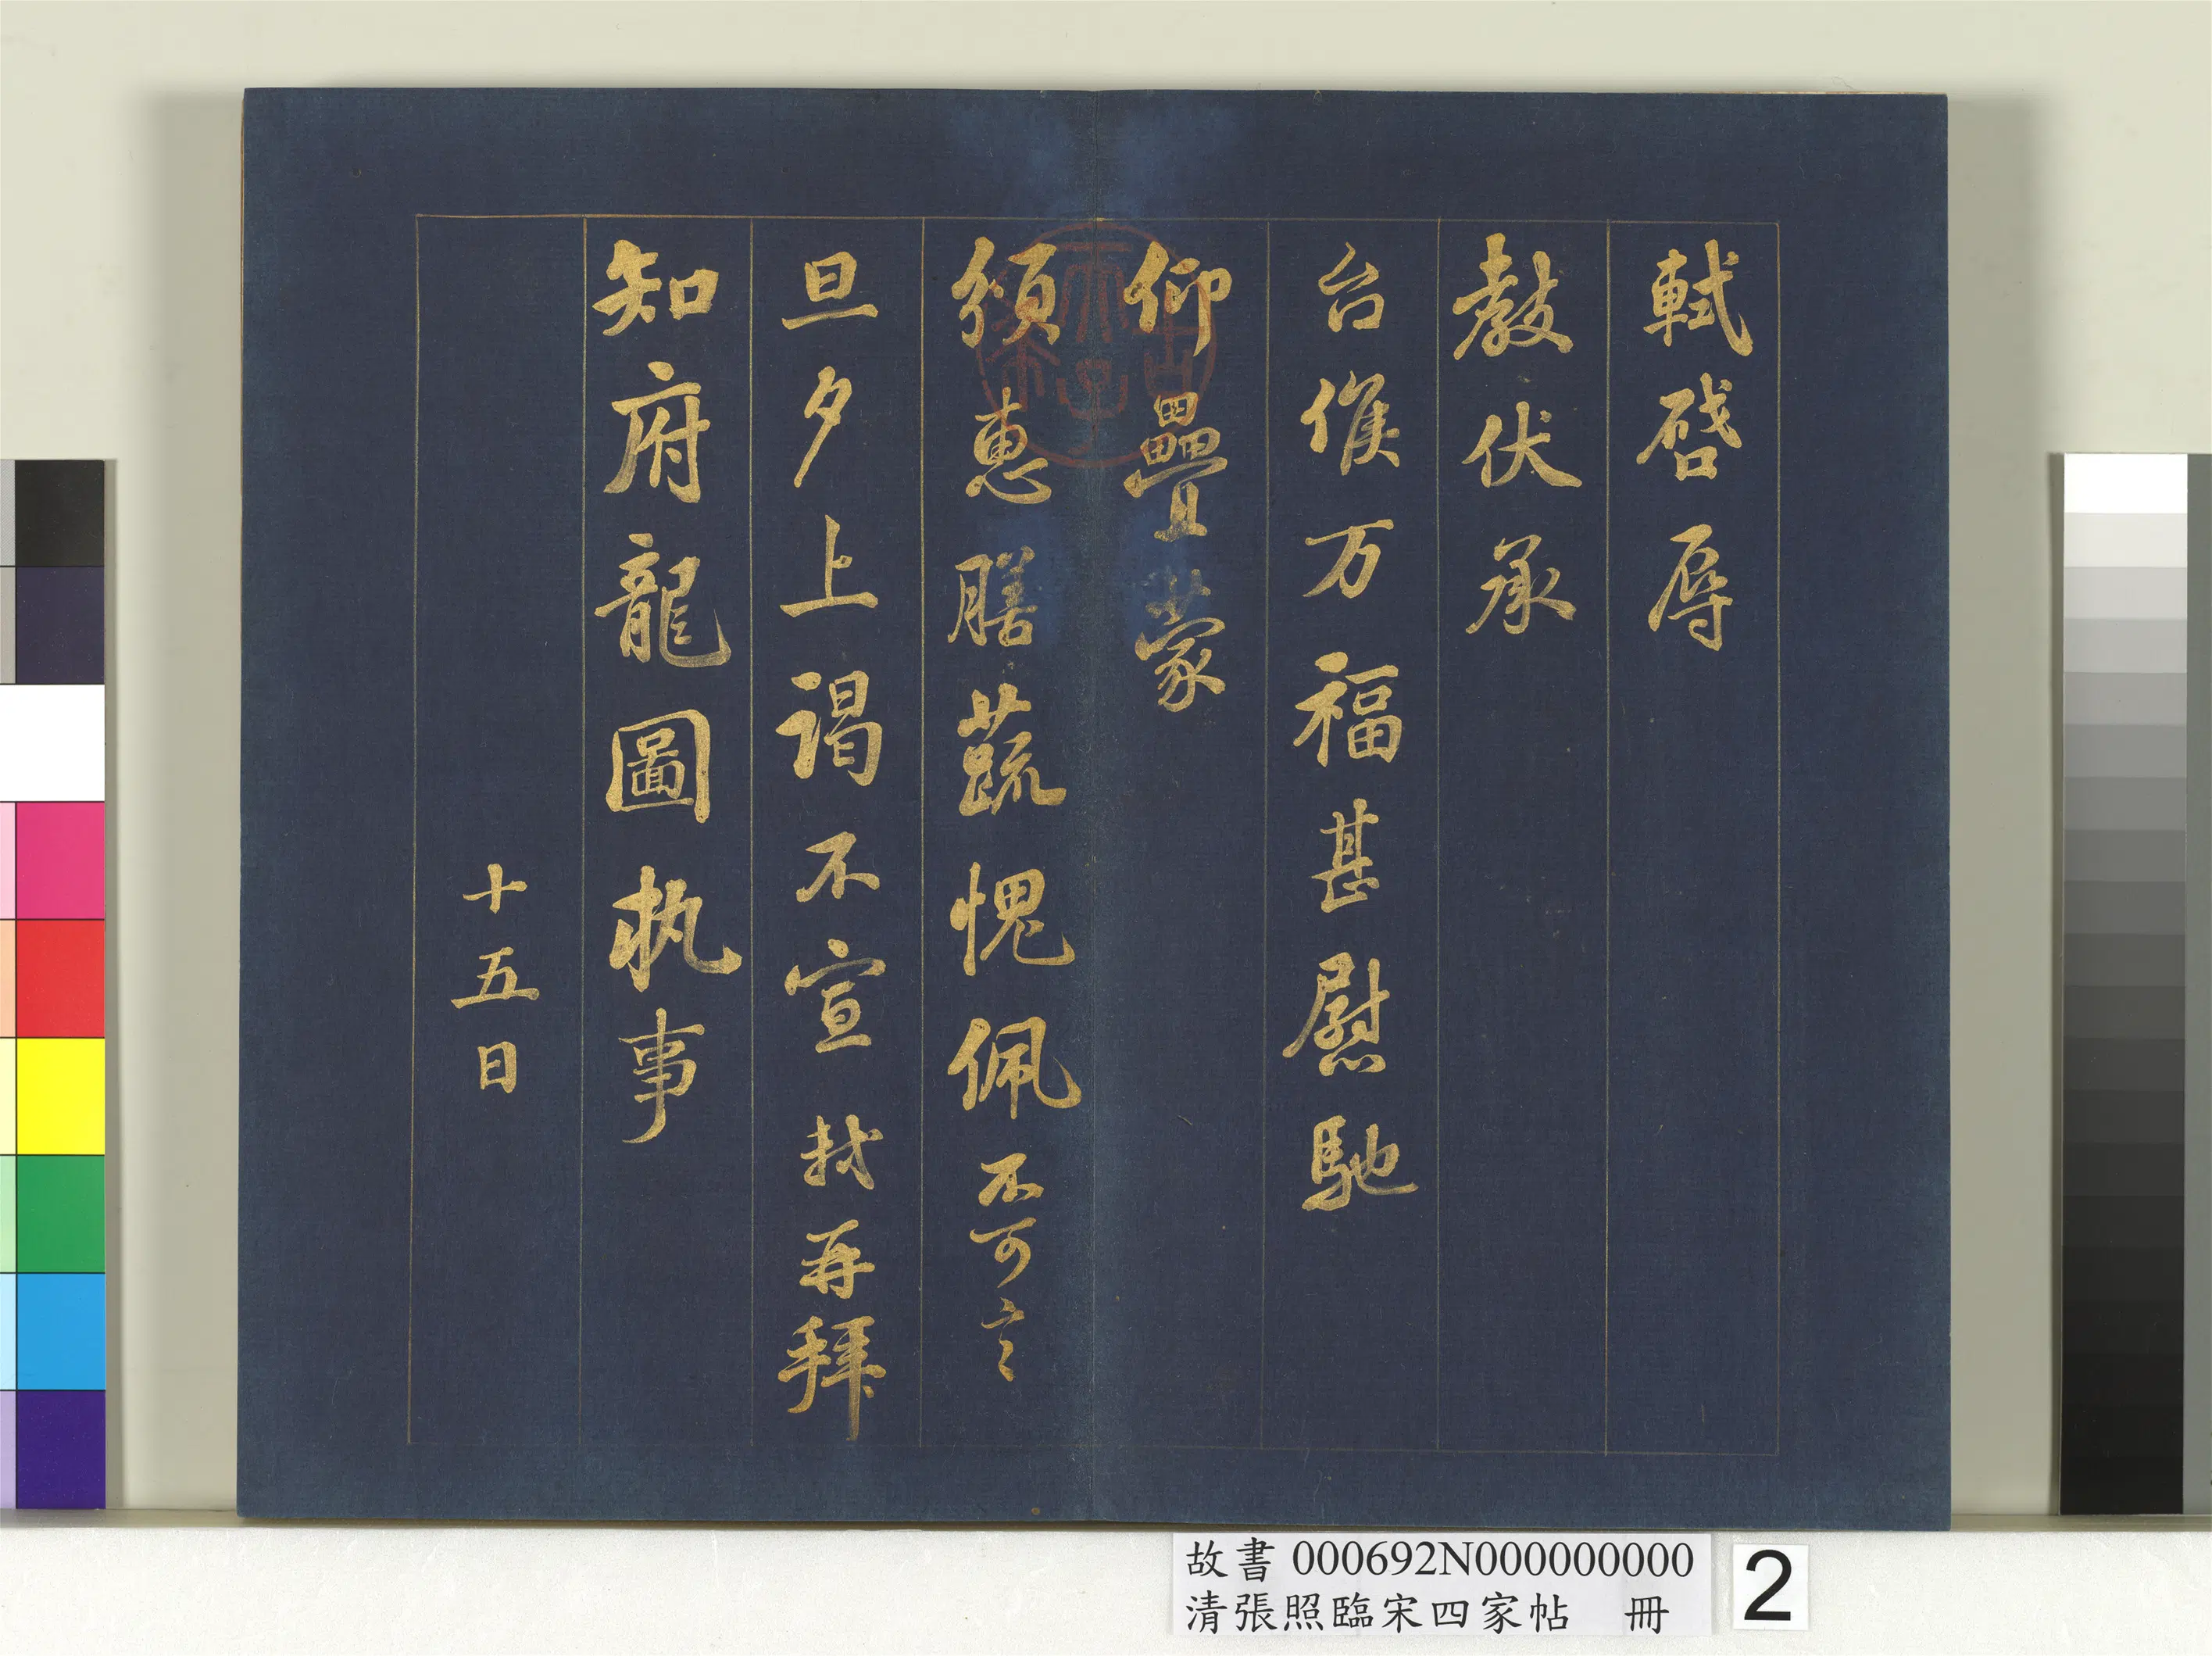 軾啓辱
教伏承
台候万福甚慰馳
仰疊蒙
須惠膳蔬愧佩不可言
旦夕上谒不宣軾再拜
知府龍圖執事
十五日
故書 000692N000000000
清張照臨宋四家帖 冊
2